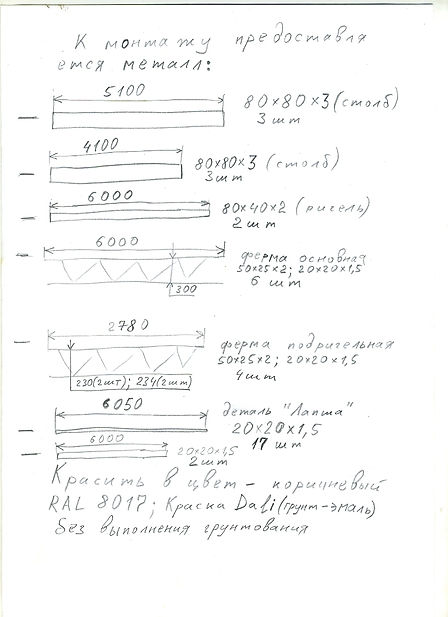 К монтажу предоставля
ется металл:
5100
80х80х3 (столб)
3 шт
4100
80х80х3 (столб)
3шт
6000
80х40х2 (ригель)
2 шт
6000
ферма основная
50х25х2; 20х20х1,5
6 шт
300
2780
ферма подригельная
50х25х2; 20х20х1,5
4шт
230(2шт); 234(2шт)
6050
деталь "Лапша"
20х20х1,5
17 шт
6000
20х20х1,5
2шт
Красить в цвет - коричневый
RAL 8017; Краска Dali (грунт-эмаль)
без выполнения грунтования